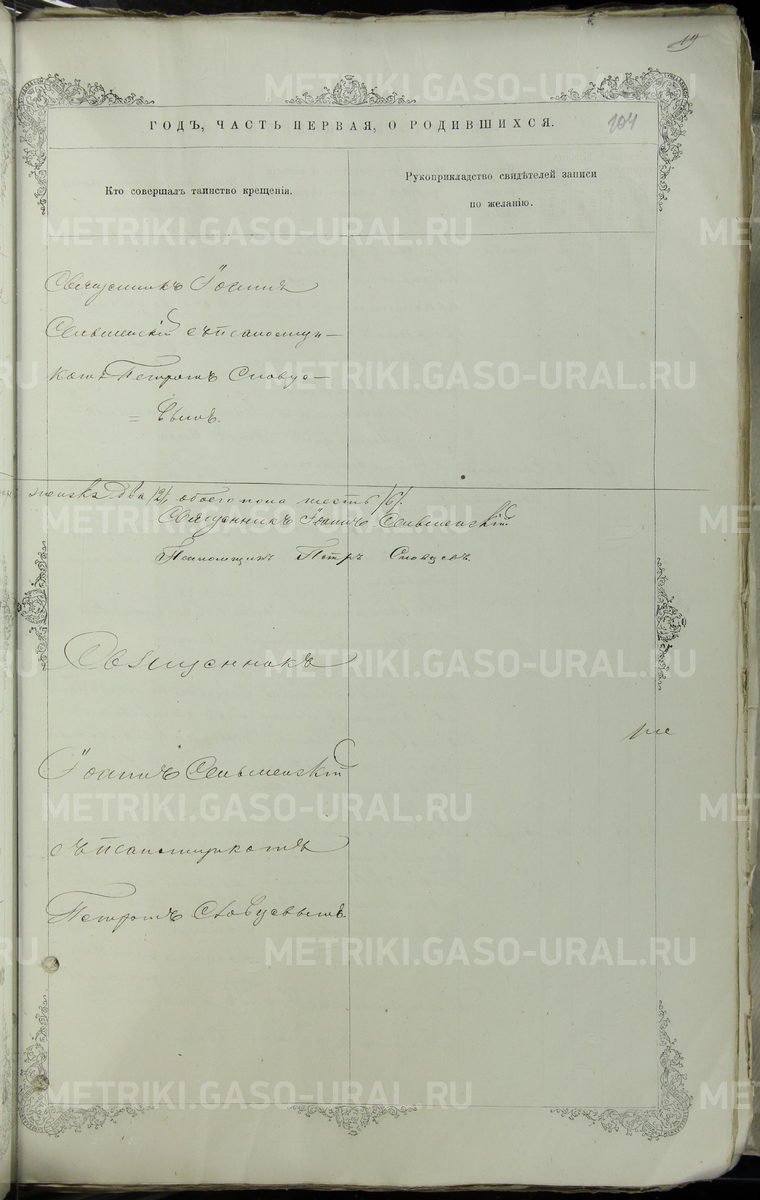 104
ГОДЪ, ЧАСТЬ ПЕРВАЯ, О РОДИВШИХСЯ.
Кто совершалъ таинство крещенія.
Рукоприкладство свидѣтелей записи
по желанію.
Священникъ Іоаннъ
съ псаломщи-
комъ Петромъ Словцо-
= вымъ.
женска два /2/, обоего пола шесть /6/.
Священникъ Іоаннъ
Псаломщикъ Петръ Словцовъ.
Священникъ
Іоаннъ
съ псаломщикомъ
Петромъ Словцовымъ.
METRIKI.GASO-URAL.RU